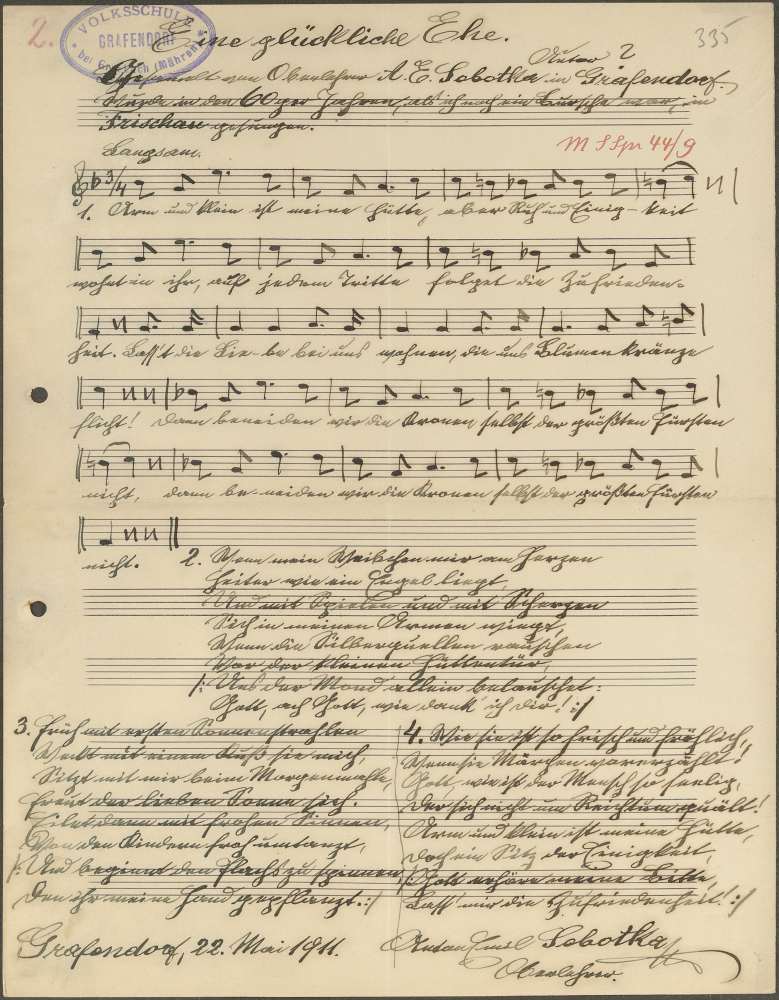 VOLKSSCHULE
GRAFENDORF
2. Eine glückliche Ehe. 335
Anton ?
Gesammelt von Oberlehrer A. E. Sobotka in Grafendorf.
Wurde in den 60ger Jahren, als ich noch ein Bursche war, in
Frischau gesungen.
Langsam. M S Spr 44/9
3/4
1. Arm und klein ist meine Hütte, aber Ruh und Einig-keit
wohnt in ihr, auf jedem Tritte folget die Zufrieden-
heit. Lass't die Lie-be bei uns wohnen, die uns Blumenkränze
flicht! Dann beneiden wir die Kronen selbst der größten Fürsten
nicht, dann be-neiden wir die Kronen selbst der größten Fürsten
nicht.
2. Wenn mein Weibchen mir am Herzen
Heiter wie ein Engel liegt,
Und mit Spielen und mit Scherzen
Sich in meinen Armen wiegt,
Wenn die Silberquellen rauschen
Vor der kleinen Hüttentür,
/: Uns der Mond allein belauschet:
Gott, ach Gott, wie dank' ich dir! :/
3. Früh mit ersten Sonnenstrahlen
Weckt mit einem Kuß sie mich,
Sitzt mit mir beim Morgenmahle,
Freut der lieben Sonne sich.
Eilet dann mit frohen Sinnen,
Von den Kindern froh umtanzt,
/: Und beginnt den Flachs zu spinnen
Den ihr meine Hand gepflanzt. :/
4. Wie sie ist so frisch und fröhlich,
Wenn sie Märchen vorerzählt!
Gott, wie ist der Mensch so seelig,
Der sich nicht um Reichtum quält!
Arm und klein ist meine Hütte,
Doch ein Sitz der Einigkeit,
/: Gott erhöre meine Bitte,
Lass' mir die Zufriedenheit! :/
Grafendorf, 22. Mai 1911. Anton Emil Sobotka
Oberlehrer.